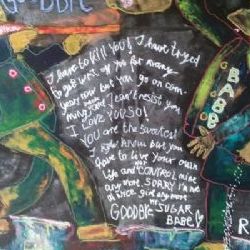 GOODBYE
I have to kill You! I have tryed
to get rid of you for many
years now but you go on com-
ming back I can't resist you
I LOVE YOU SO!
YOU are the sweetest
I know Ann but you
have to live your own
life and CONTROL mine
any more SORRY I'm not
a nice girl any more
GOODBYE MR SUGAR
BABE
BABE
R